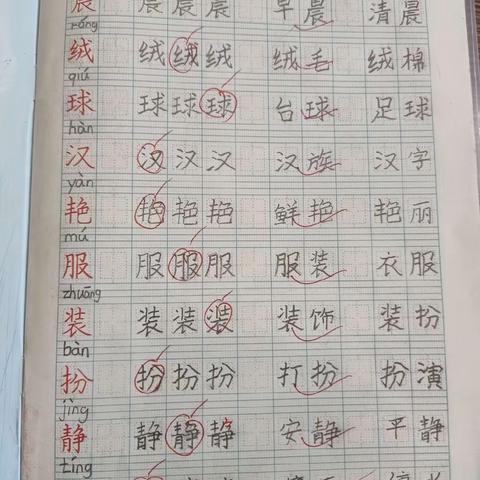 晨 晨 晨 晨 早晨 清晨
róng
绒 绒 绒 绒 绒毛 绒棉
qiú
球 球 球 球 台球 足球
hàn
汉 汉 汉 汉 汉族 汉字
yàn
艳 艳 艳 艳 鲜艳 艳丽
mú
服 服 服 服 服装 衣服
zhuāng
装 装 装 装 装饰 装扮
bàn
扮 扮 扮 扮 打扮 扮演
jìng
静 静 静 静 安静 平静
tíng